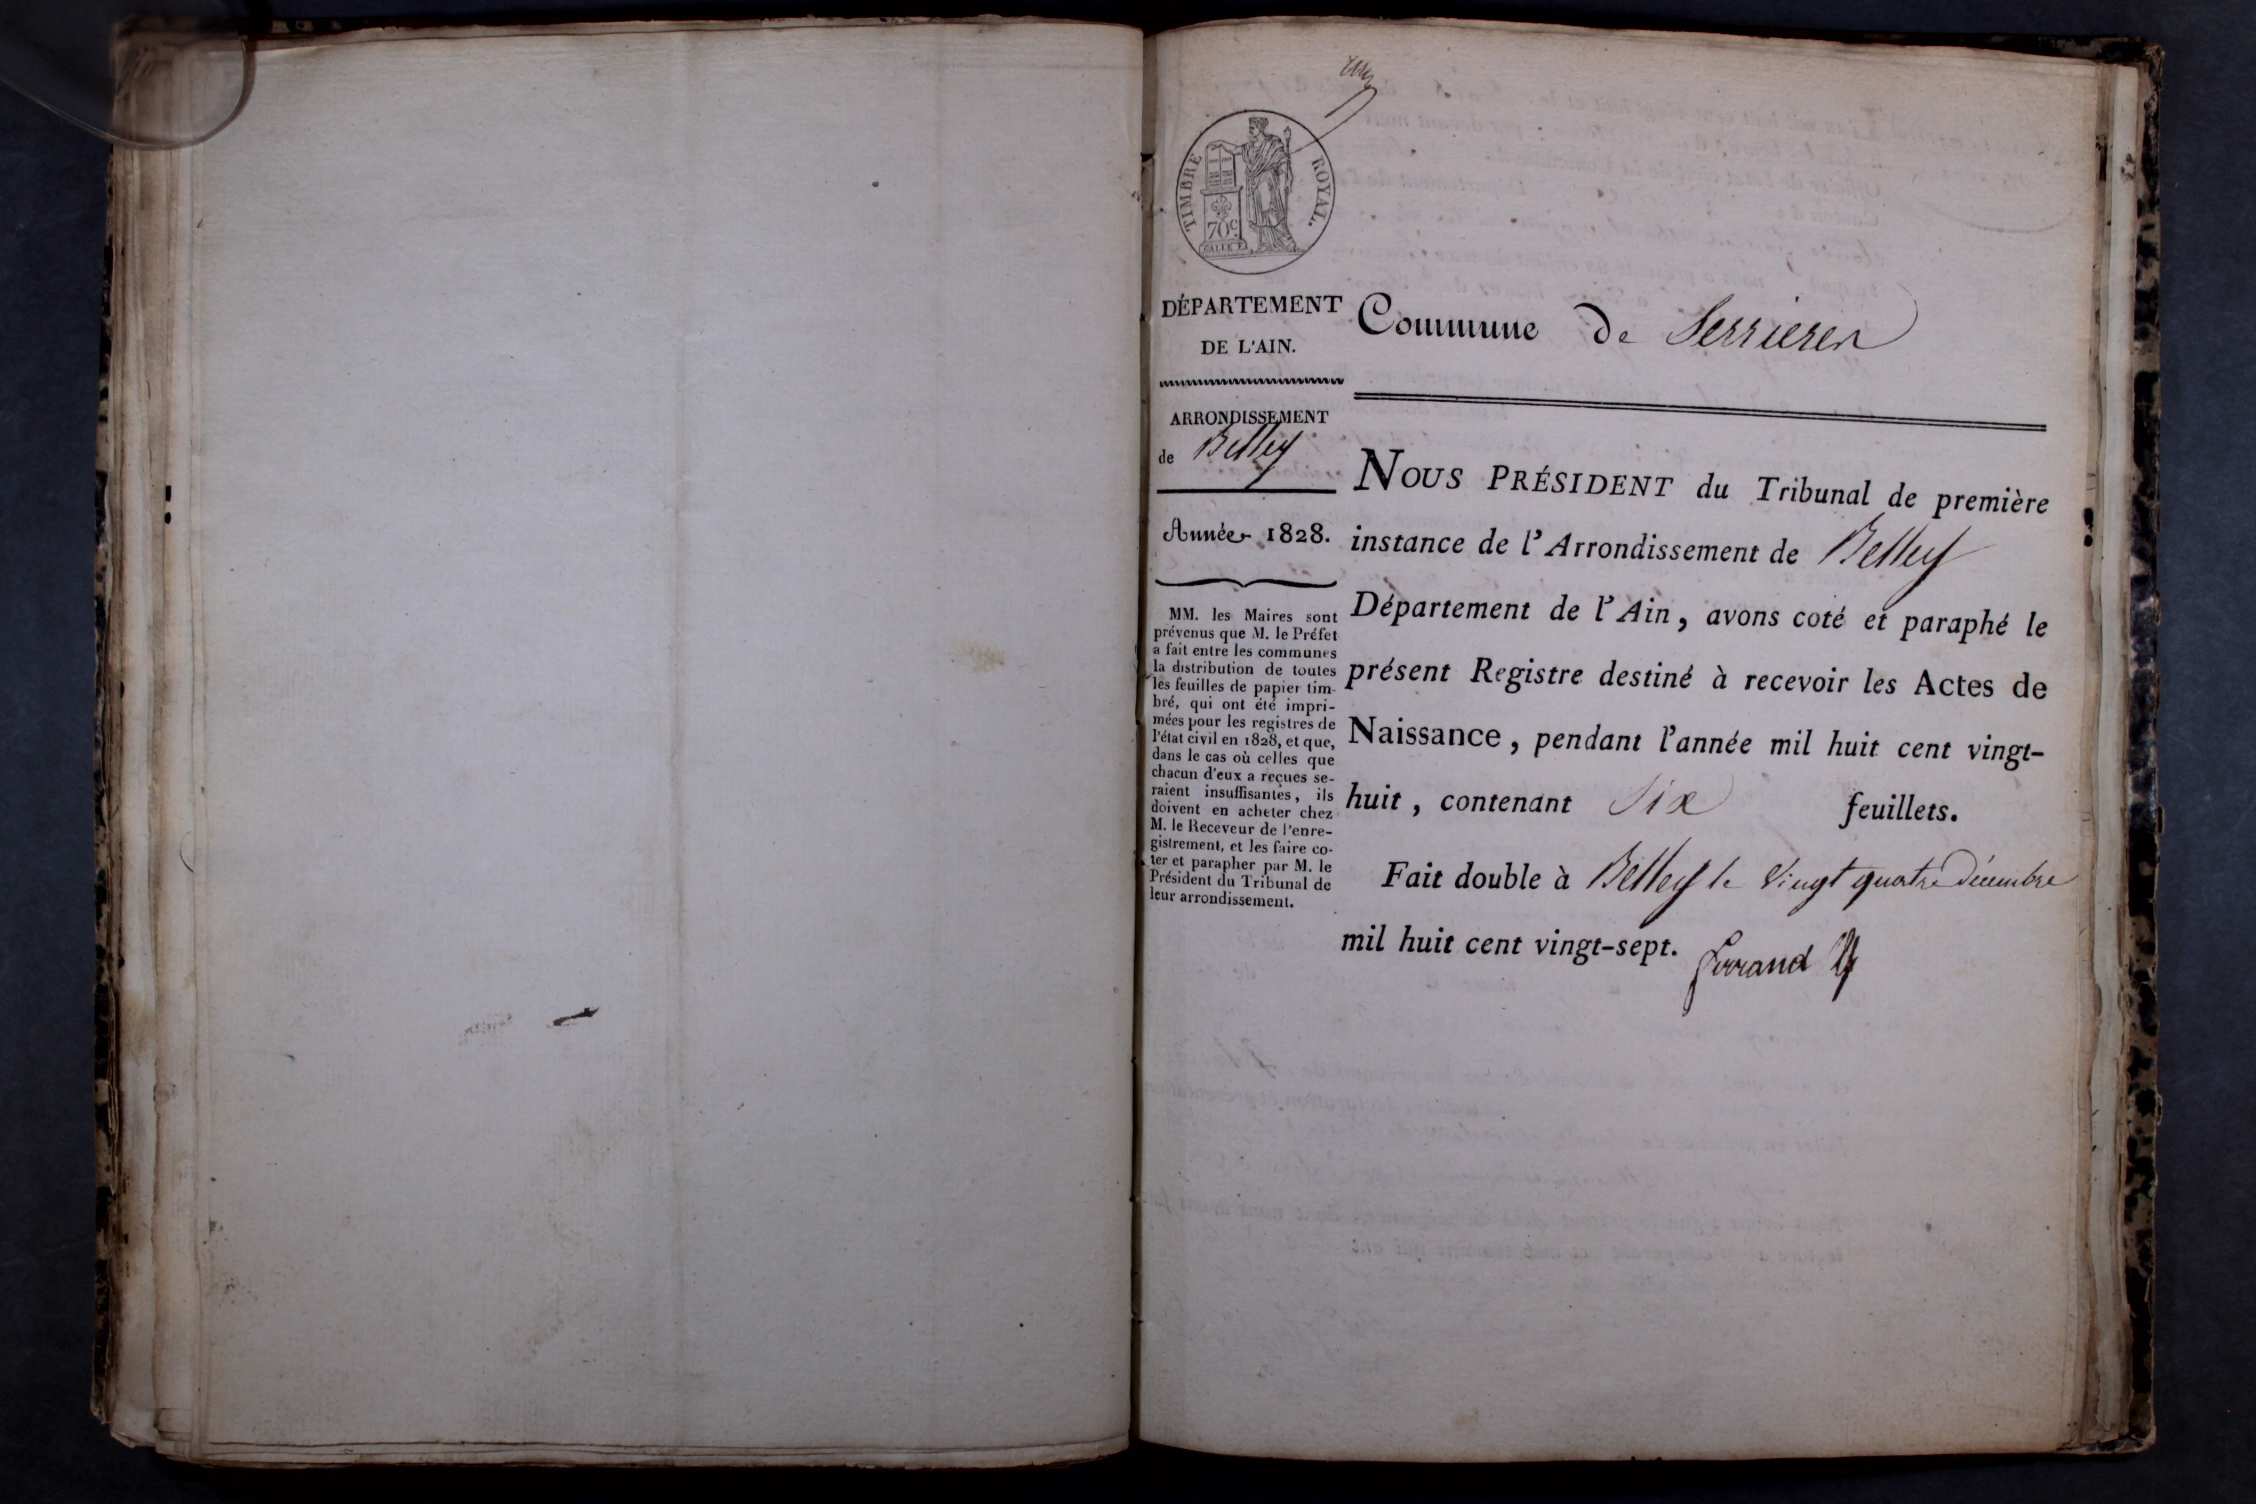 TIMBRE ROYAL.
70c.
DÉPARTEMENT
DE L'AIN.
ARRONDISSEMENT
de Belley
Année 1828.
MM. les Maires sont
prévenus que M. le Préfet
a fait entre les communes
la distribution de toutes
les feuilles de papier tim-
bré, qui ont été impri-
mées pour les registres de
l'état civil en 1828, et que,
dans le cas où celles que
chacun d'eux a reçues se-
raient insuffisantes, ils
doivent en acheter chez
M. le Receveur de l'enre-
gistrement, et les faire co-
ter et parapher par M. le
Président du Tribunal de
leur arrondissement.
Commune de Serrieres
NOUS PRÉSIDENT du Tribunal de première
instance de l'Arrondissement de Belley
Département de l'Ain, avons coté et paraphé le
présent Registre destiné à recevoir les Actes de
Naissance, pendant l'année mil huit cent vingt-
huit, contenant Six feuillets.
Fait double à Belley le Vingt quatre décembre
mil huit cent vingt-sept.